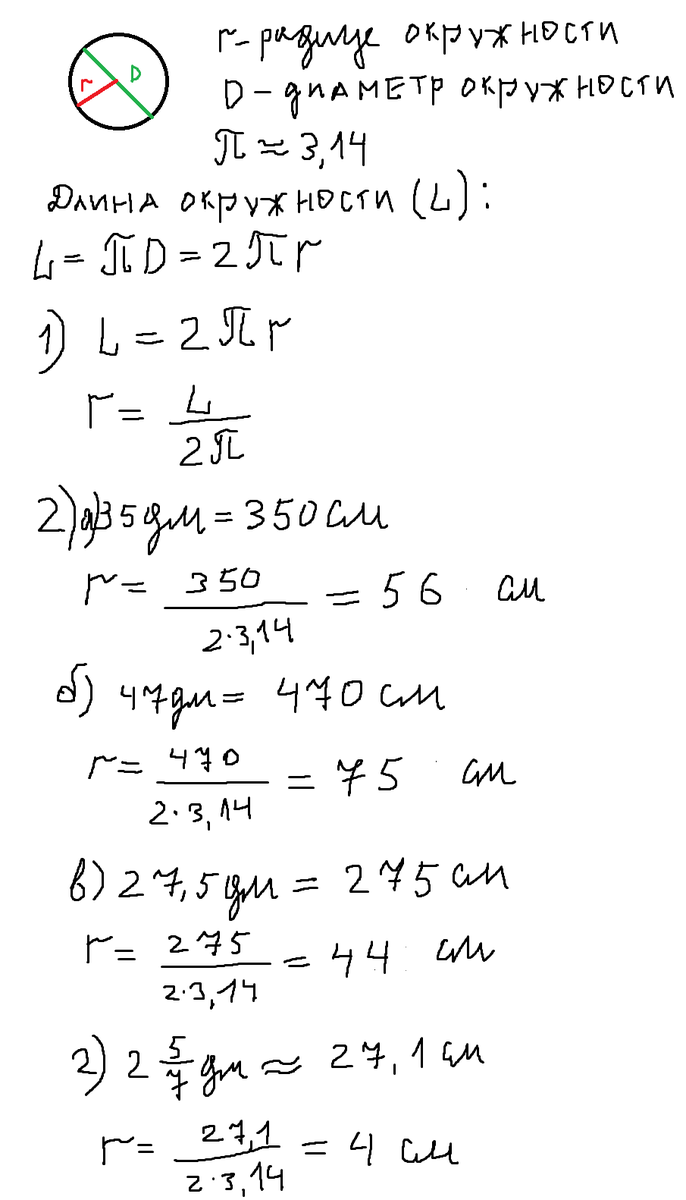 r D
r - радиус окружности
D - диаметр окружности
π ≈ 3,14
Длина окружности (L):
L = πD = 2πr
1) L = 2πr
r = L / 2π
2) а) 35 дм = 350 см
r = 350 / 2·3,14 = 56 см
б) 47 дм = 470 см
r = 470 / 2·3,14 = 75 см
в) 27,5 дм = 275 см
r = 275 / 2·3,14 = 44 см
г) 2 5/7 дм ≈ 27,1 см
r = 27,1 / 2·3,14 = 4 см